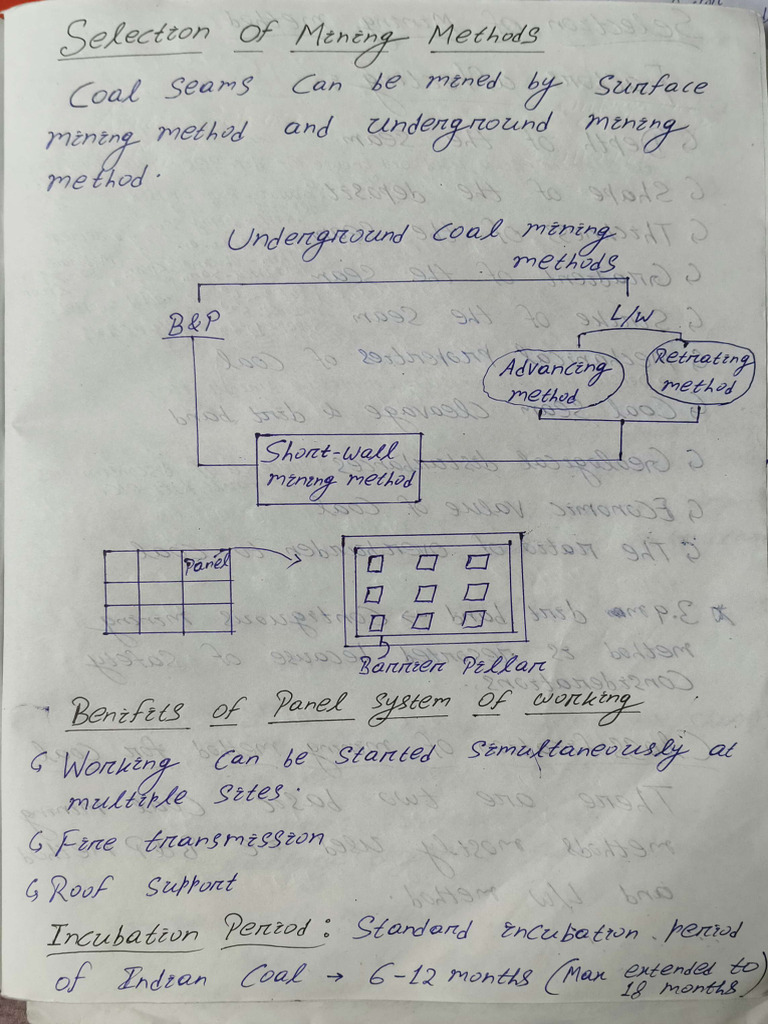 Selection Of Mining Methods
Coal seams Can be mined by Surface
mining method and underground mining
method.
Underground Coal mining
methods
B&P
L/W
Advancing
method
Retirating
method
Short-wall
mining method
Panel
Barrier Pillar
Benifits of Panel System of working
Working Can be Started Simultaneously at
multiple Sites.
Fire transmission
Roof Support
Incubation Period: Standard incubation period
of Indian Coal → 6-12 months (Max extended to
18 months)